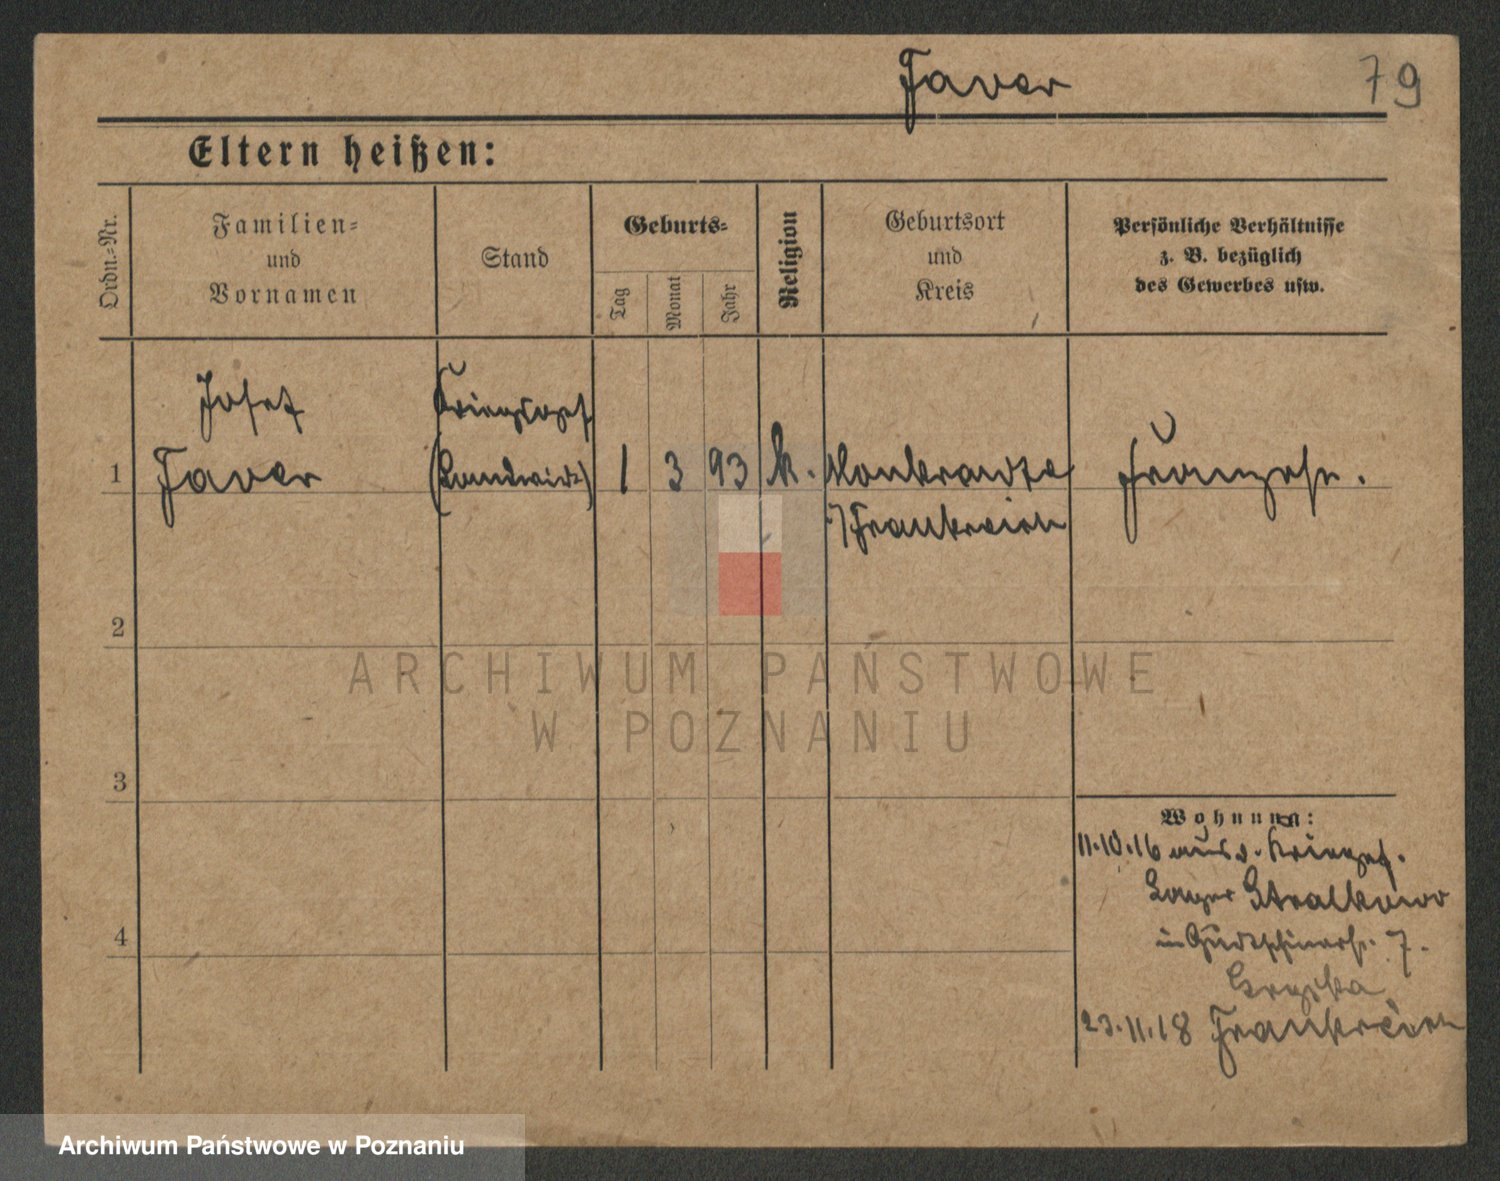 Faver
79
Eltern heißen:
Ordn.-Nr.
Familien-
und
Vornamen
Stand
Geburts-
Tag
Monat
Jahr
Religion
Geburtsort
und
Kreis
Persönliche Verhältnisse
z. B. bezüglich
des Gewerbes usw.
Josef
Kriegsgef.
1
Faver
(Landwirt)
1
3
93
k.
Franzose.
Frankreich
2
3
4
Wohnung:
11.10.16 aus d. Kriegsgef.
Lager Stralkowo
in 7.
23.11.18 Frankreich
ARCHIWUM PAŃSTWOWE
W POZNANIU
Archiwum Państwowe w Poznaniu